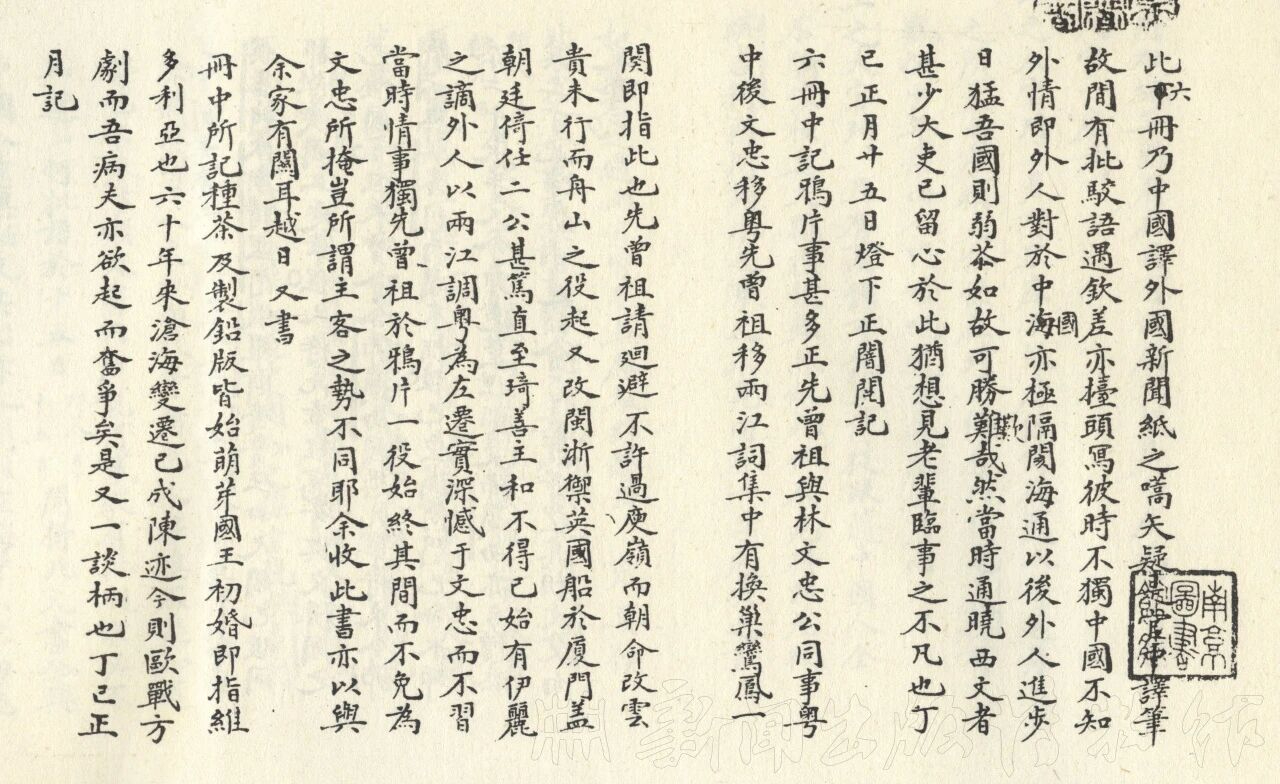 此六冊乃中國譯外國新聞紙之嚆矢疑譯筆
故間有批駁語遇欽差亦擡頭寫彼時不獨中國不知
外情即外人對於中國海亦極隔閡海通以後外人進步
日猛吾國則弱苶如故可勝歎難哉然當時通曉西文者
甚少大吏已留心於此猶想見老輩臨事之不凡也丁
巳正月廿五日燈下正闇閱記
六冊中記鴉片事甚多正先曾祖與林文忠公同事粤
中後文忠移粤先曾祖移兩江詞集中有換巢鸞鳳一
闋即指此也先曾祖請迴避不許過庾嶺而朝命改雲
貴未行而舟山之役起又改閩浙禦英國船於廈門蓋
朝廷倚任二公甚篤直至琦善主和不得已始有伊麗
之謫外人以兩江調粤為左遷實深憾于文忠而不習
當時情事獨先曾祖於鴉片一役始終其間而不免為
文忠所掩豈所謂主客之勢不同耶余收此書亦以與
余家有關耳越日又書
冊中所記種茶及製鉛版皆始萌芽國王初婚即指維
多利亞也六十年來滄海變遷已成陳迹今則歐戰方
劇而吾病夫亦欲起而奮爭矣是又一談柄也丁巳正
月記
南京
圖書